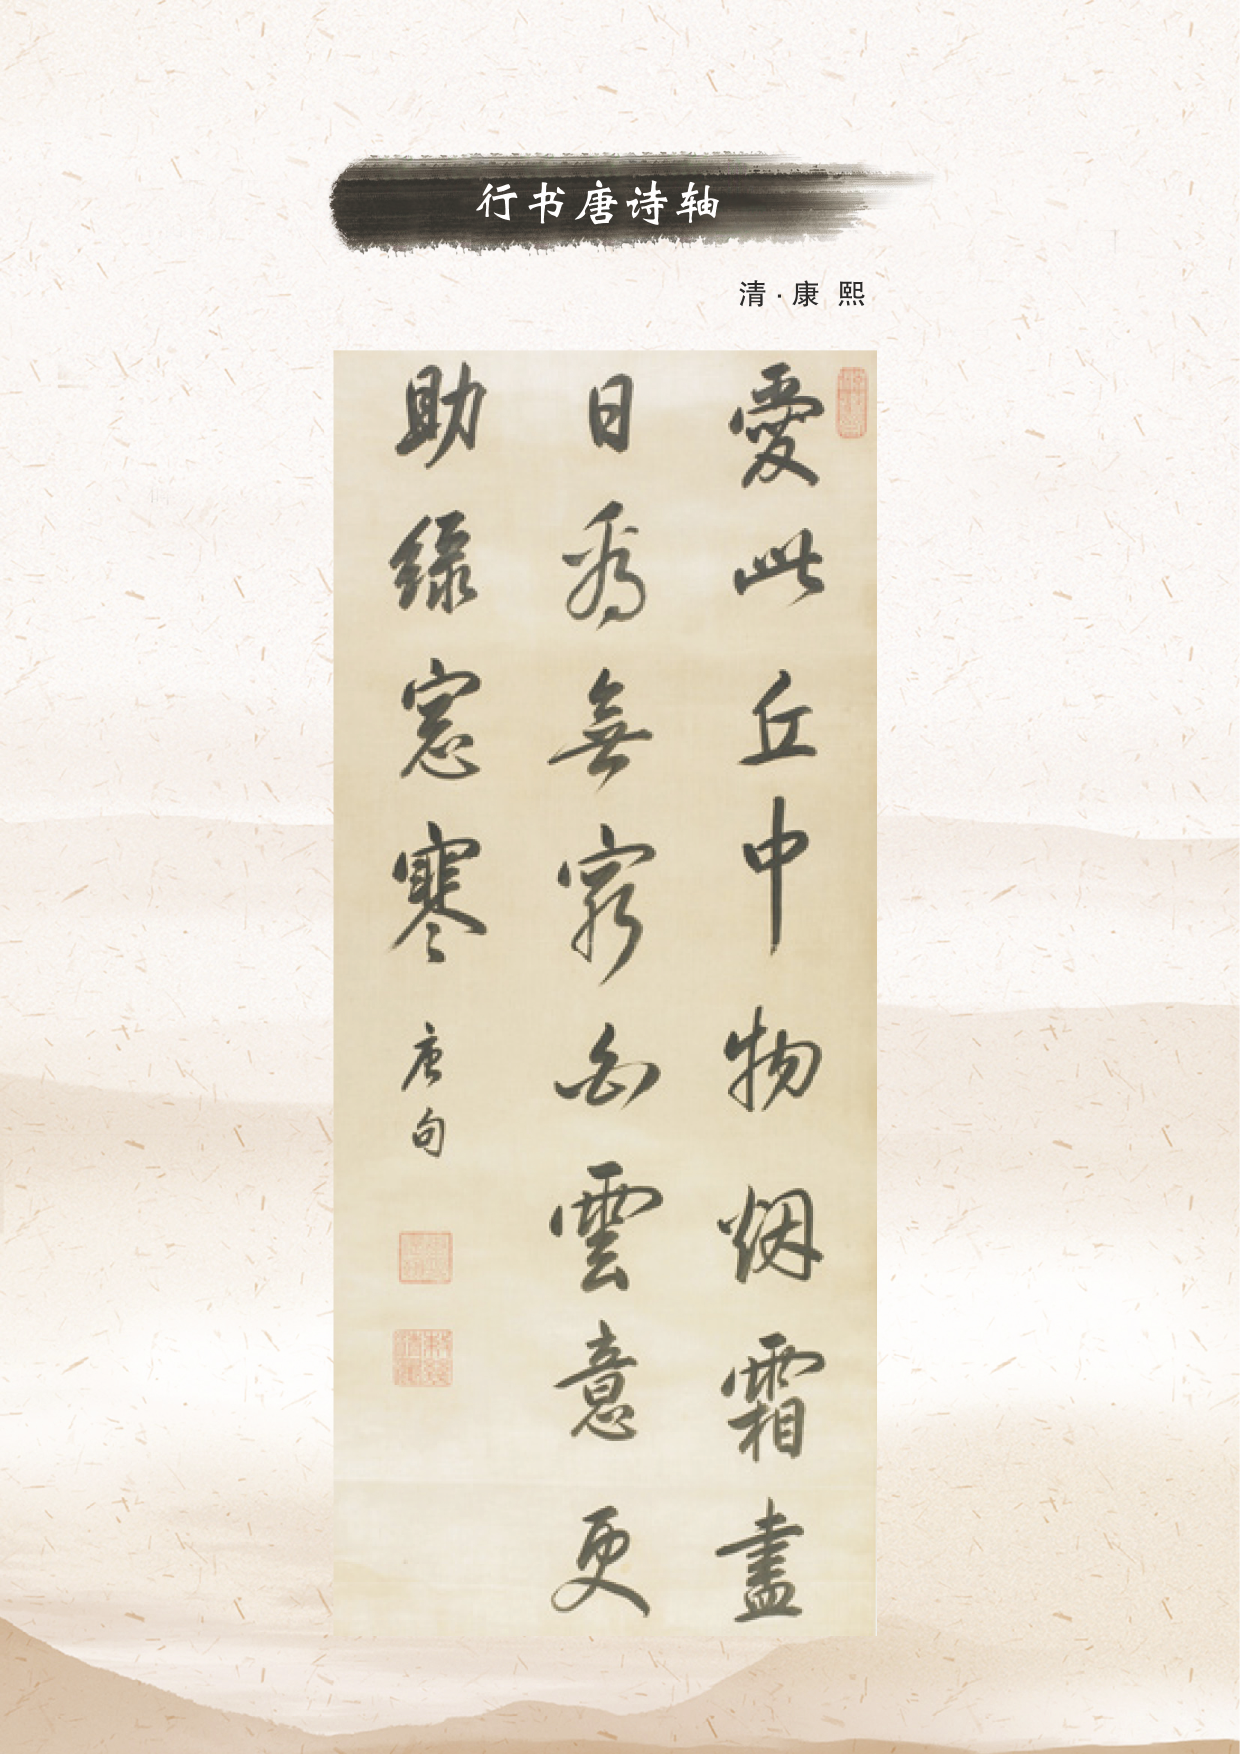 行书唐诗轴
清·康 熙
愛此丘中物烟霜盡
日看無窮白雲意更
助綠窓寒
唐句